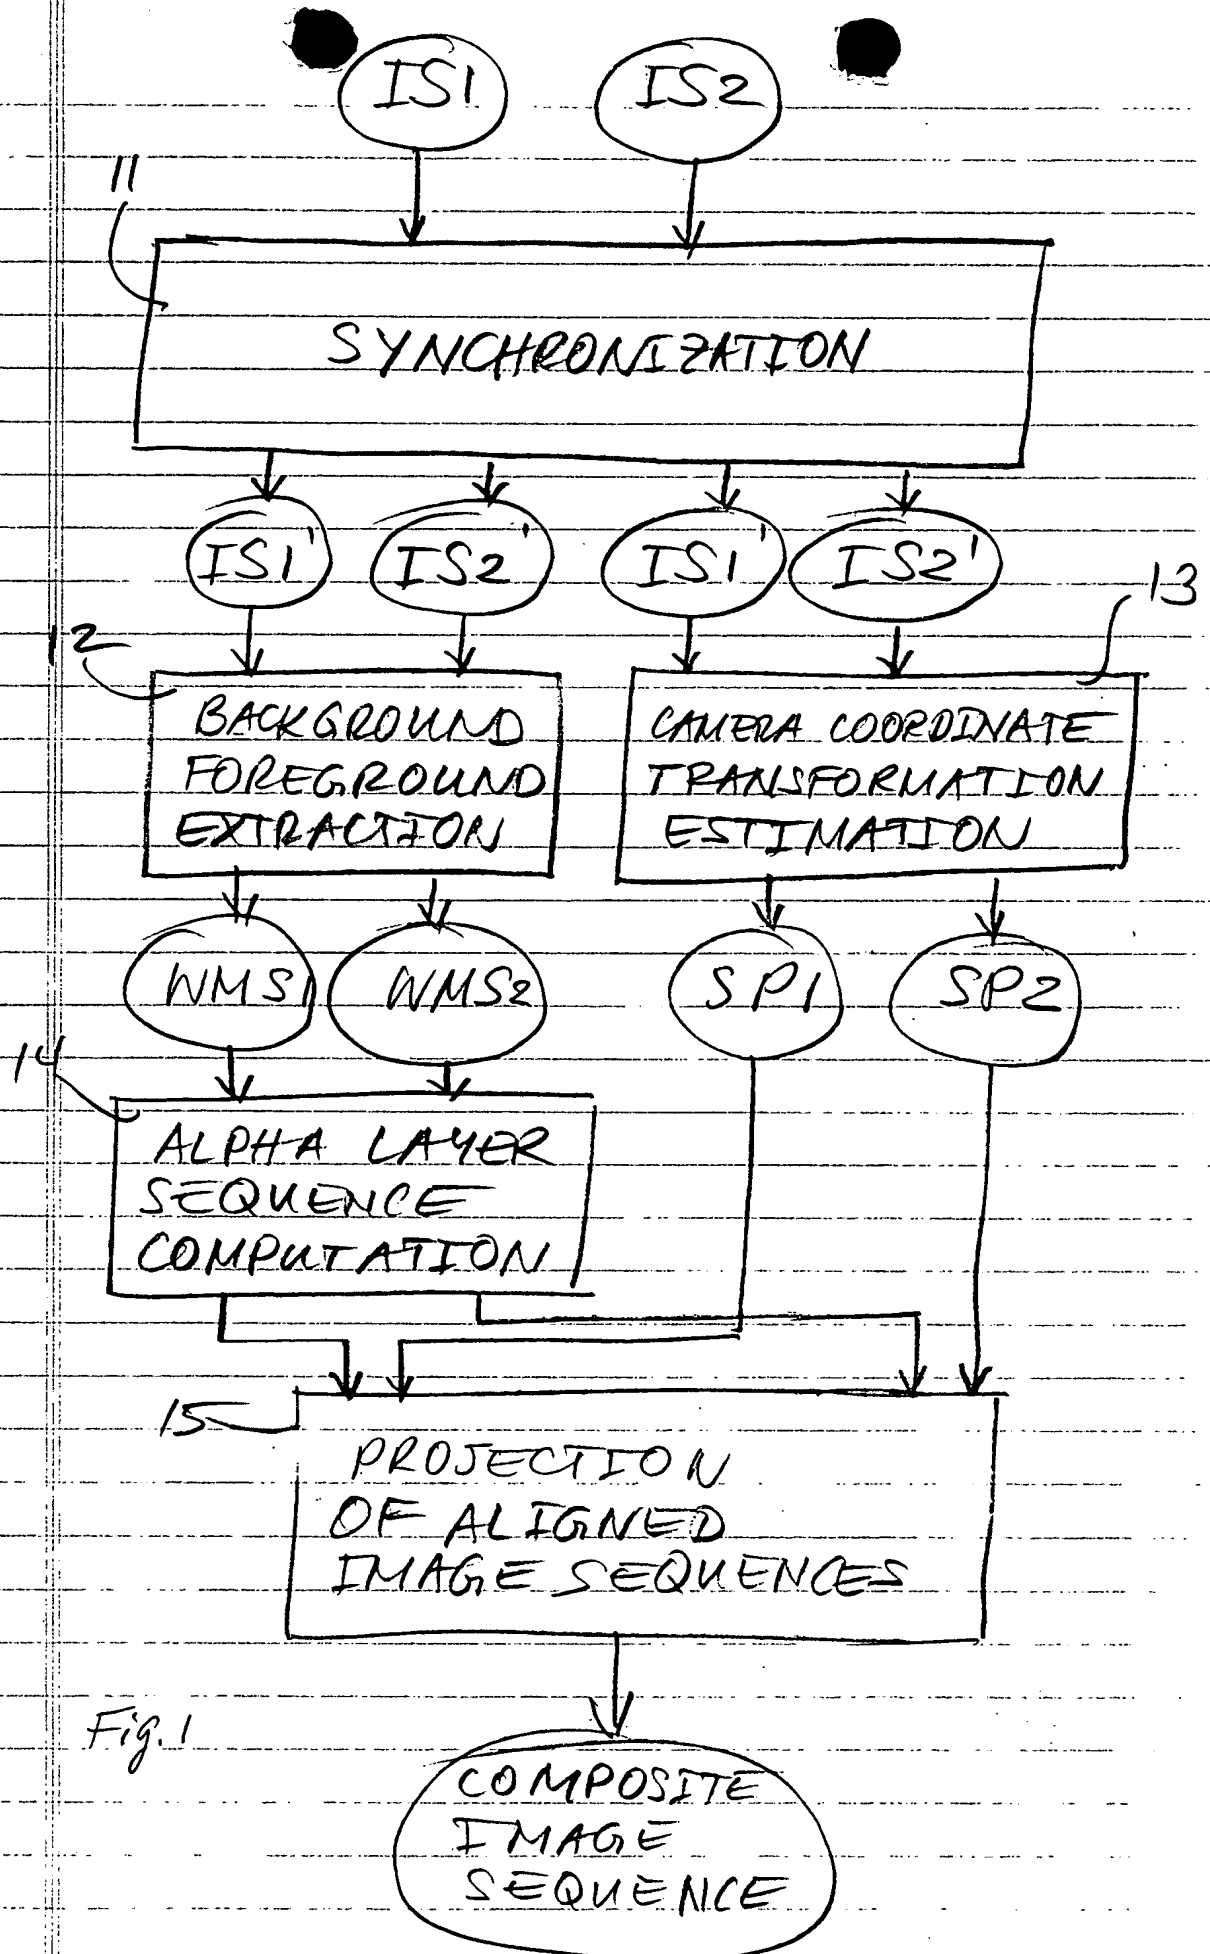 IS1 IS2
11
SYNCHRONIZATION
IS1' IS2' IS1' IS2'
12 13
BACKGROUND
FOREGROUND
EXTRACTION
CAMERA COORDINATE
TRANSFORMATION
ESTIMATION
WMS1 WMS2 SP1 SP2
14
ALPHA LAYER
SEQUENCE
COMPUTATION
15
PROJECTION
OF ALIGNED
IMAGE SEQUENCES
Fig. 1
COMPOSITE
IMAGE
SEQUENCE